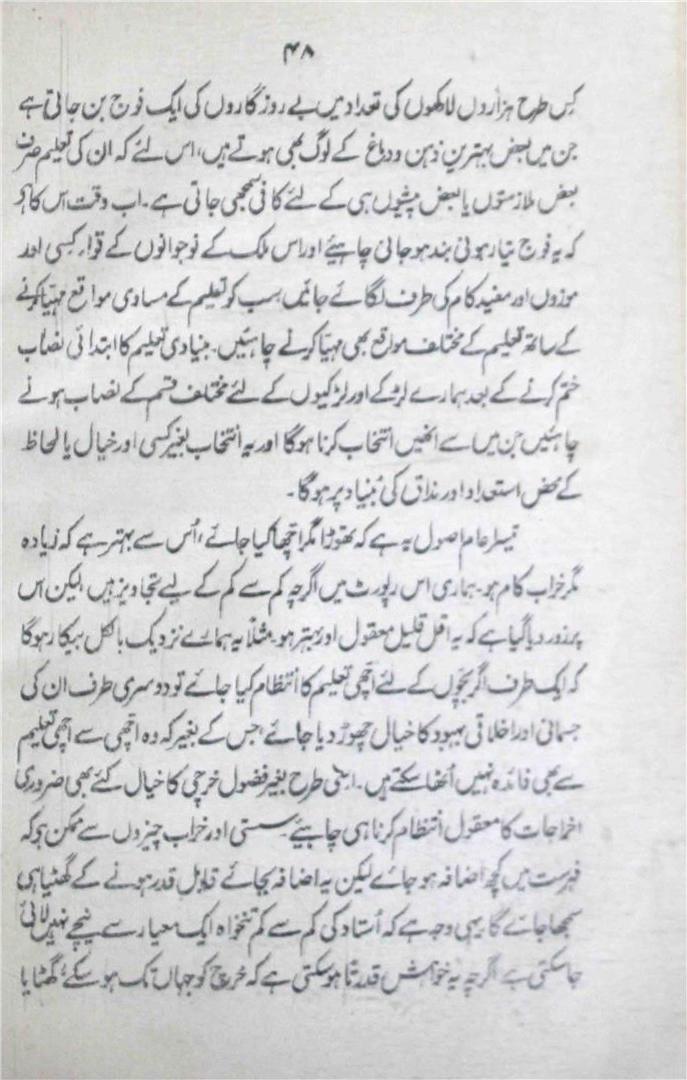 ۴۸
کس طرح ہزاروں لاکھوں کی تعداد میں بے روزگاروں کی ایک فوج بن جاتی ہے
جن میں بعض بہترین ذہن و دماغ کے لوگ بھی ہوتے ہیں، اس لئے کہ ان کی تعلیم صرف
بعض ملازمتوں یا بعض پیشوں ہی کے لئے کافی سمجھی جاتی ہے۔ اب وقت اس کا ہے
کہ یہ فوج تیار ہونی بند ہو جانی چاہیئے اور اس ملک کے نوجوانوں کے قواء کسی اور
موزوں اور مفید کام کی طرف لگائے جائیں سب کو تعلیم کے مساوی مواقع مہیا کرنے
کے ساتھ تعلیم کے مختلف مواقع بھی مہیا کرنے چاہئیں۔ بنیادی تعلیم کا ابتدائی نصاب
ختم کرنے کے بعد ہمارے لڑکے اور لڑکیوں کے لئے مختلف قسم کے نصاب ہونے
چاہئیں جن میں سے انھیں انتخاب کرنا ہوگا اور یہ انتخاب بغیر کسی اور خیال یا لحاظ
کے محض استعداد اور مذاق کی بنیاد پر ہوگا۔
تیسرا عام اصول یہ ہے کہ تھوڑا مگر اچھا کیا جائے، اُس سے بہتر ہے کہ زیادہ
مگر خراب کام ہو۔ ہماری اس رپورٹ میں اگرچہ کم سے کم کے لیے تجاویز ہیں لیکن اس
پر زور دیا گیا ہے کہ یہ اقل قلیل معقول اور بہتر ہو۔ مثلاً یہ ہمارے نزدیک بالکل بیکار ہوگا
کہ ایک طرف اگر بچوں کے لئے اچھی تعلیم کا انتظام کیا جائے تو دوسری طرف ان کی
جسمانی اور اخلاقی بہبود کا خیال چھوڑ دیا جائے، جس کے بغیر کہ وہ اچھی سے اچھی تعلیم
سے بھی فائدہ نہیں اُٹھا سکتے ہیں۔ اسی طرح بغیر فضول خرچی کا خیال کئے بھی ضروری
اخراجات کا معقول انتظام کرنا ہی چاہیئے۔ سستی اور خراب چیزوں سے ممکن ہو کہ
فہرست میں کچھ اضافہ ہو جائے لیکن یہ اضافہ بجائے قابل قدر ہونے کے گھٹیا ہی
سمجھا جائے گا۔ یہی وجہ ہے کہ اُستاد کی کم سے کم تنخواہ ایک معیار سے نیچے نہیں لائی
جا سکتی ہے اگرچہ یہ خواہش قدرتاً ہو سکتی ہے کہ خرچ کو جہاں تک ہو سکے، گھٹایا